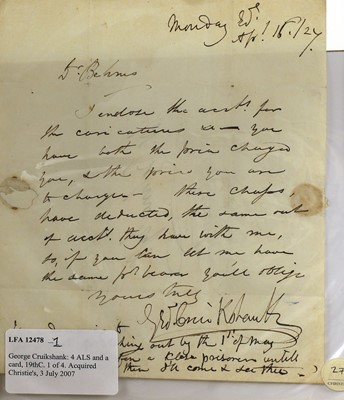 Monday Ed.g
Apl. 16./27.
Dr. Behnes
I enclose the acct. for
the caricatures &c — you
have both the price charged
you, & the price you are
to charge — these chaps
have deducted, the same out
of acct. they have with me,
so, if you can let me have
the same pr. bearer you'll oblige
Yours truly
Geo. Cruikshank
thing out by the 1st. of May
a close prisoner until
then I'll come & see thee —
LFA 12478 -1
George Cruikshank: 4 ALS and a
card, 19thC. 1 of 4. Acquired
Christie's, 3 July 2007
27